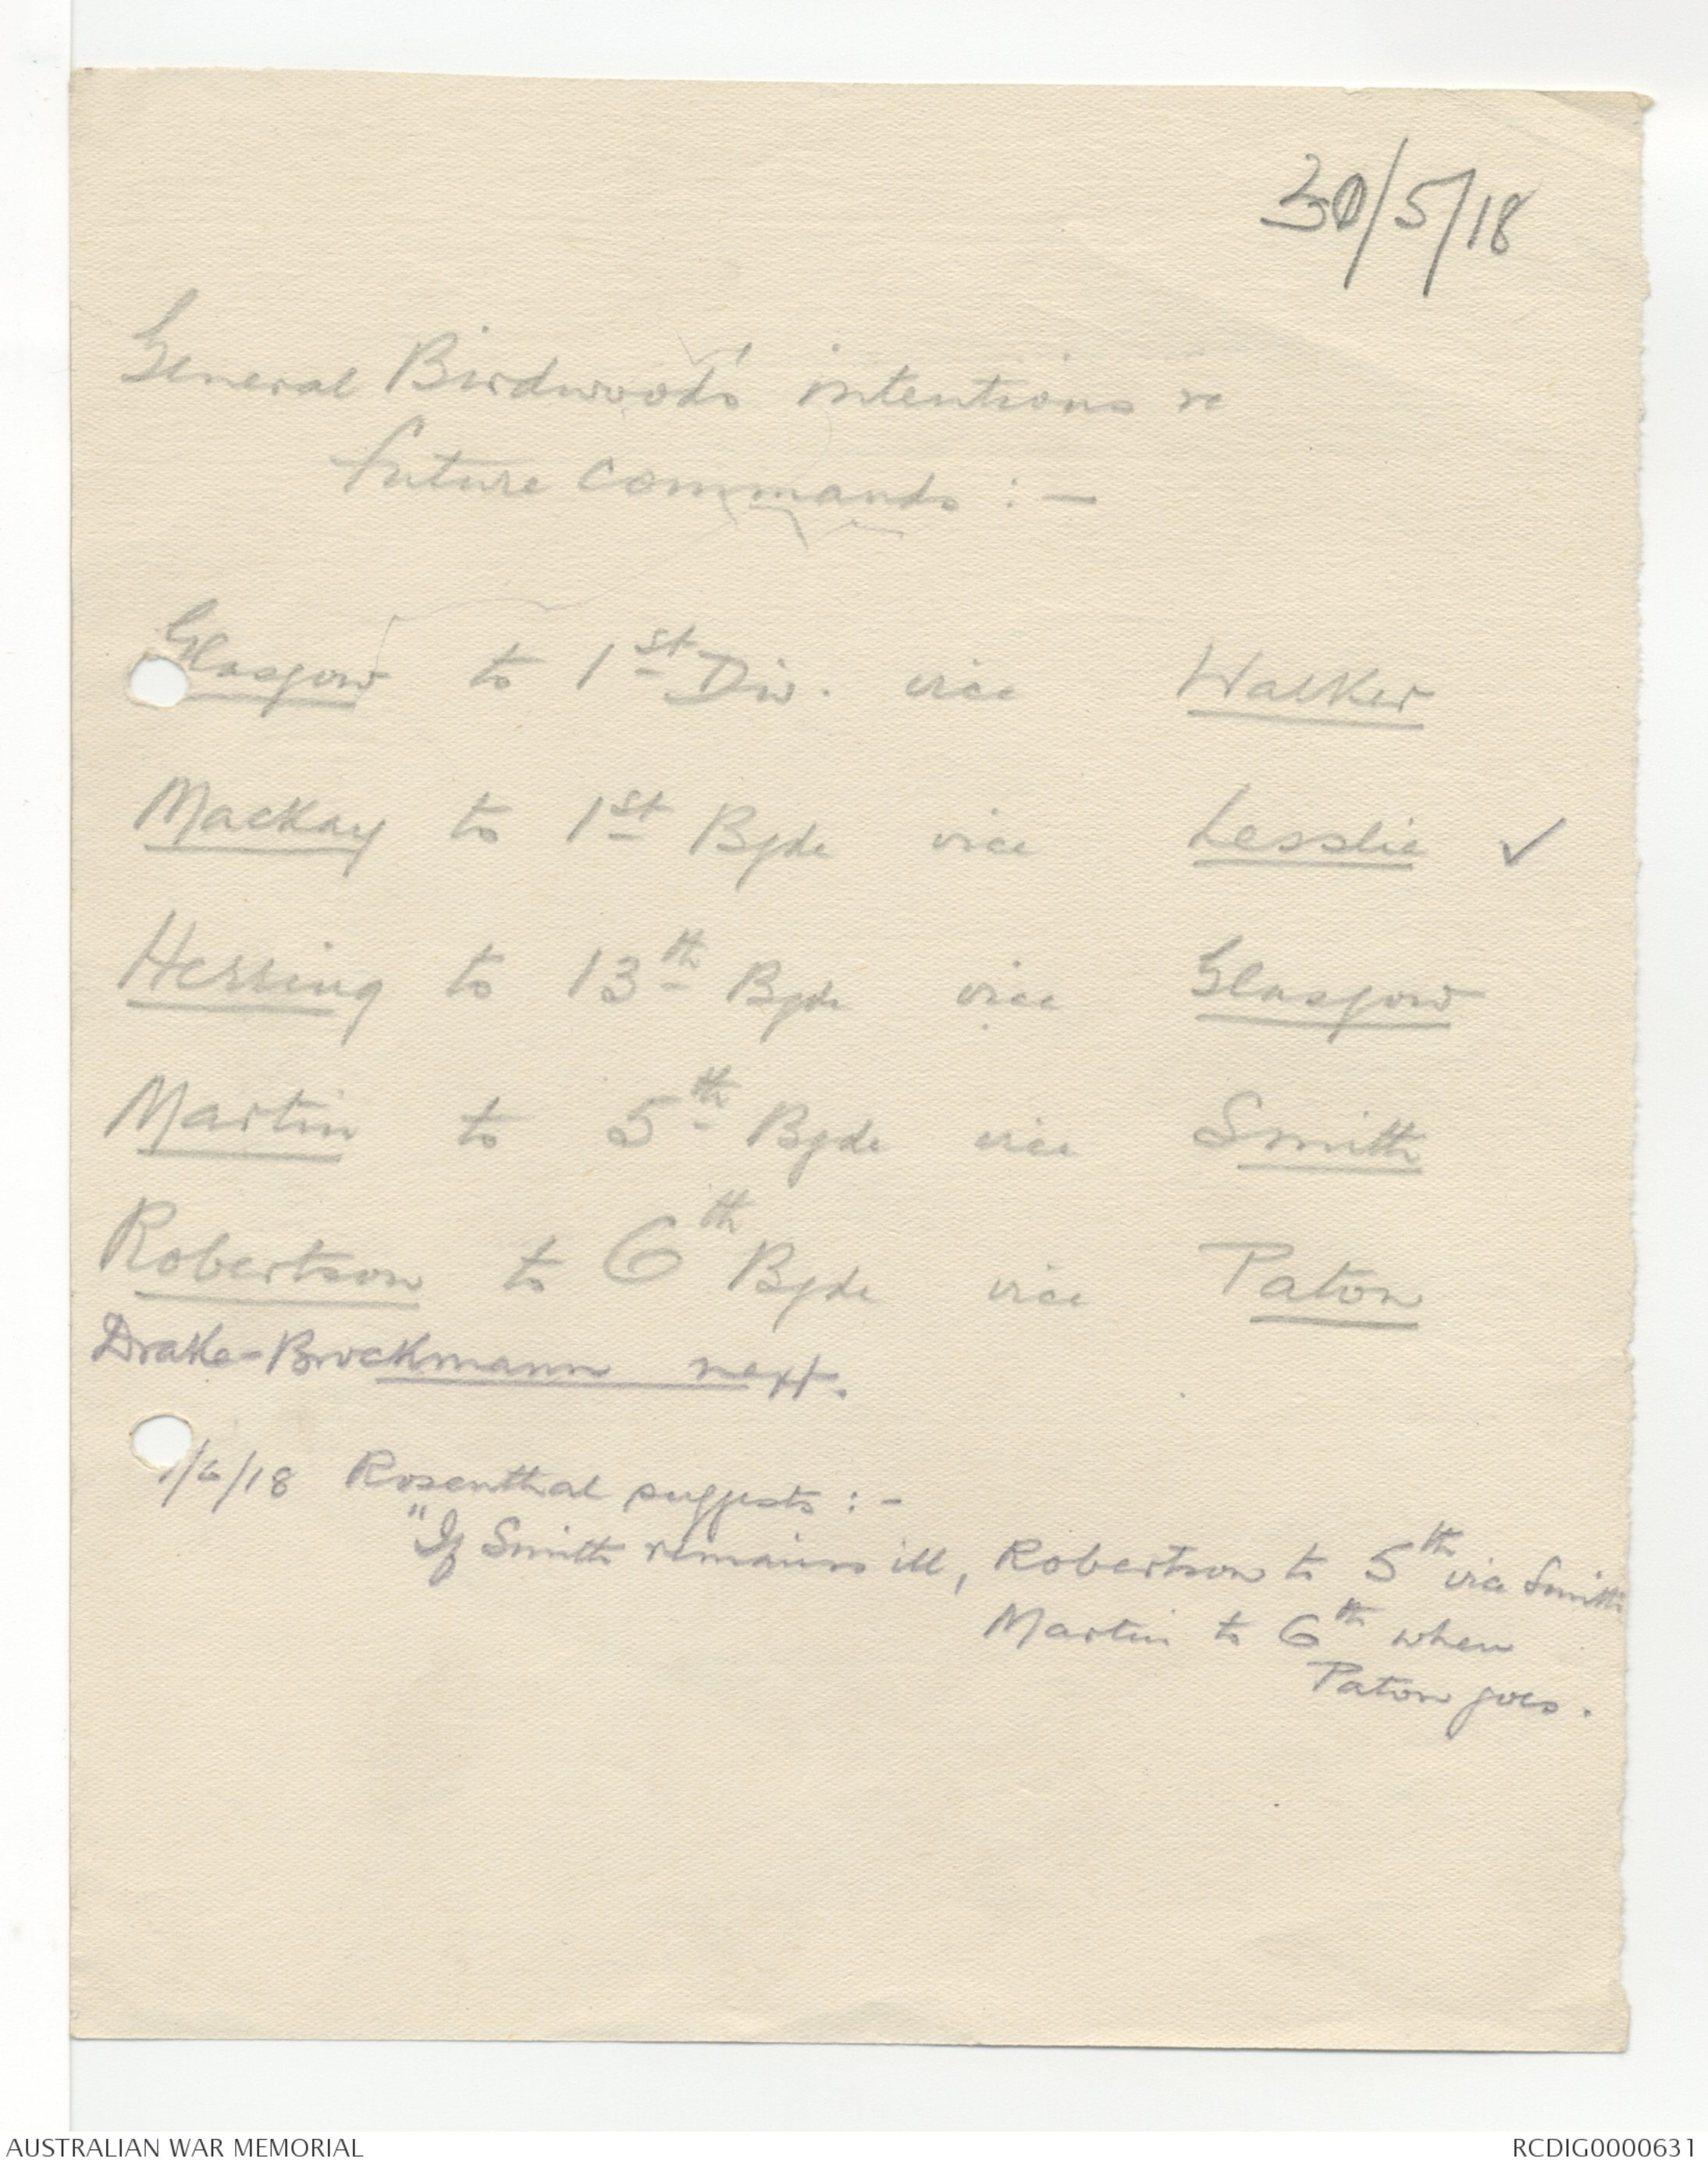 30/5/18
General Birdwood's intentions re
future commands : —
Glasgow to 1st Div. vice Walker
Mackay to 1st Bgde vice Lesslie ✓
Herring to 13th Bgde vice Glasgow
Martin to 5th Bgde vice Smith
Robertson to 6th Bgde vice Paton
Drake-Brockmann next.
1/6/18 Rosenthal suggests : -
"If Smith remains ill, Robertson to 5th vice Smith
Martin to 6th when
Paton goes.
AUSTRALIAN WAR MEMORIAL
RCDIG0000631